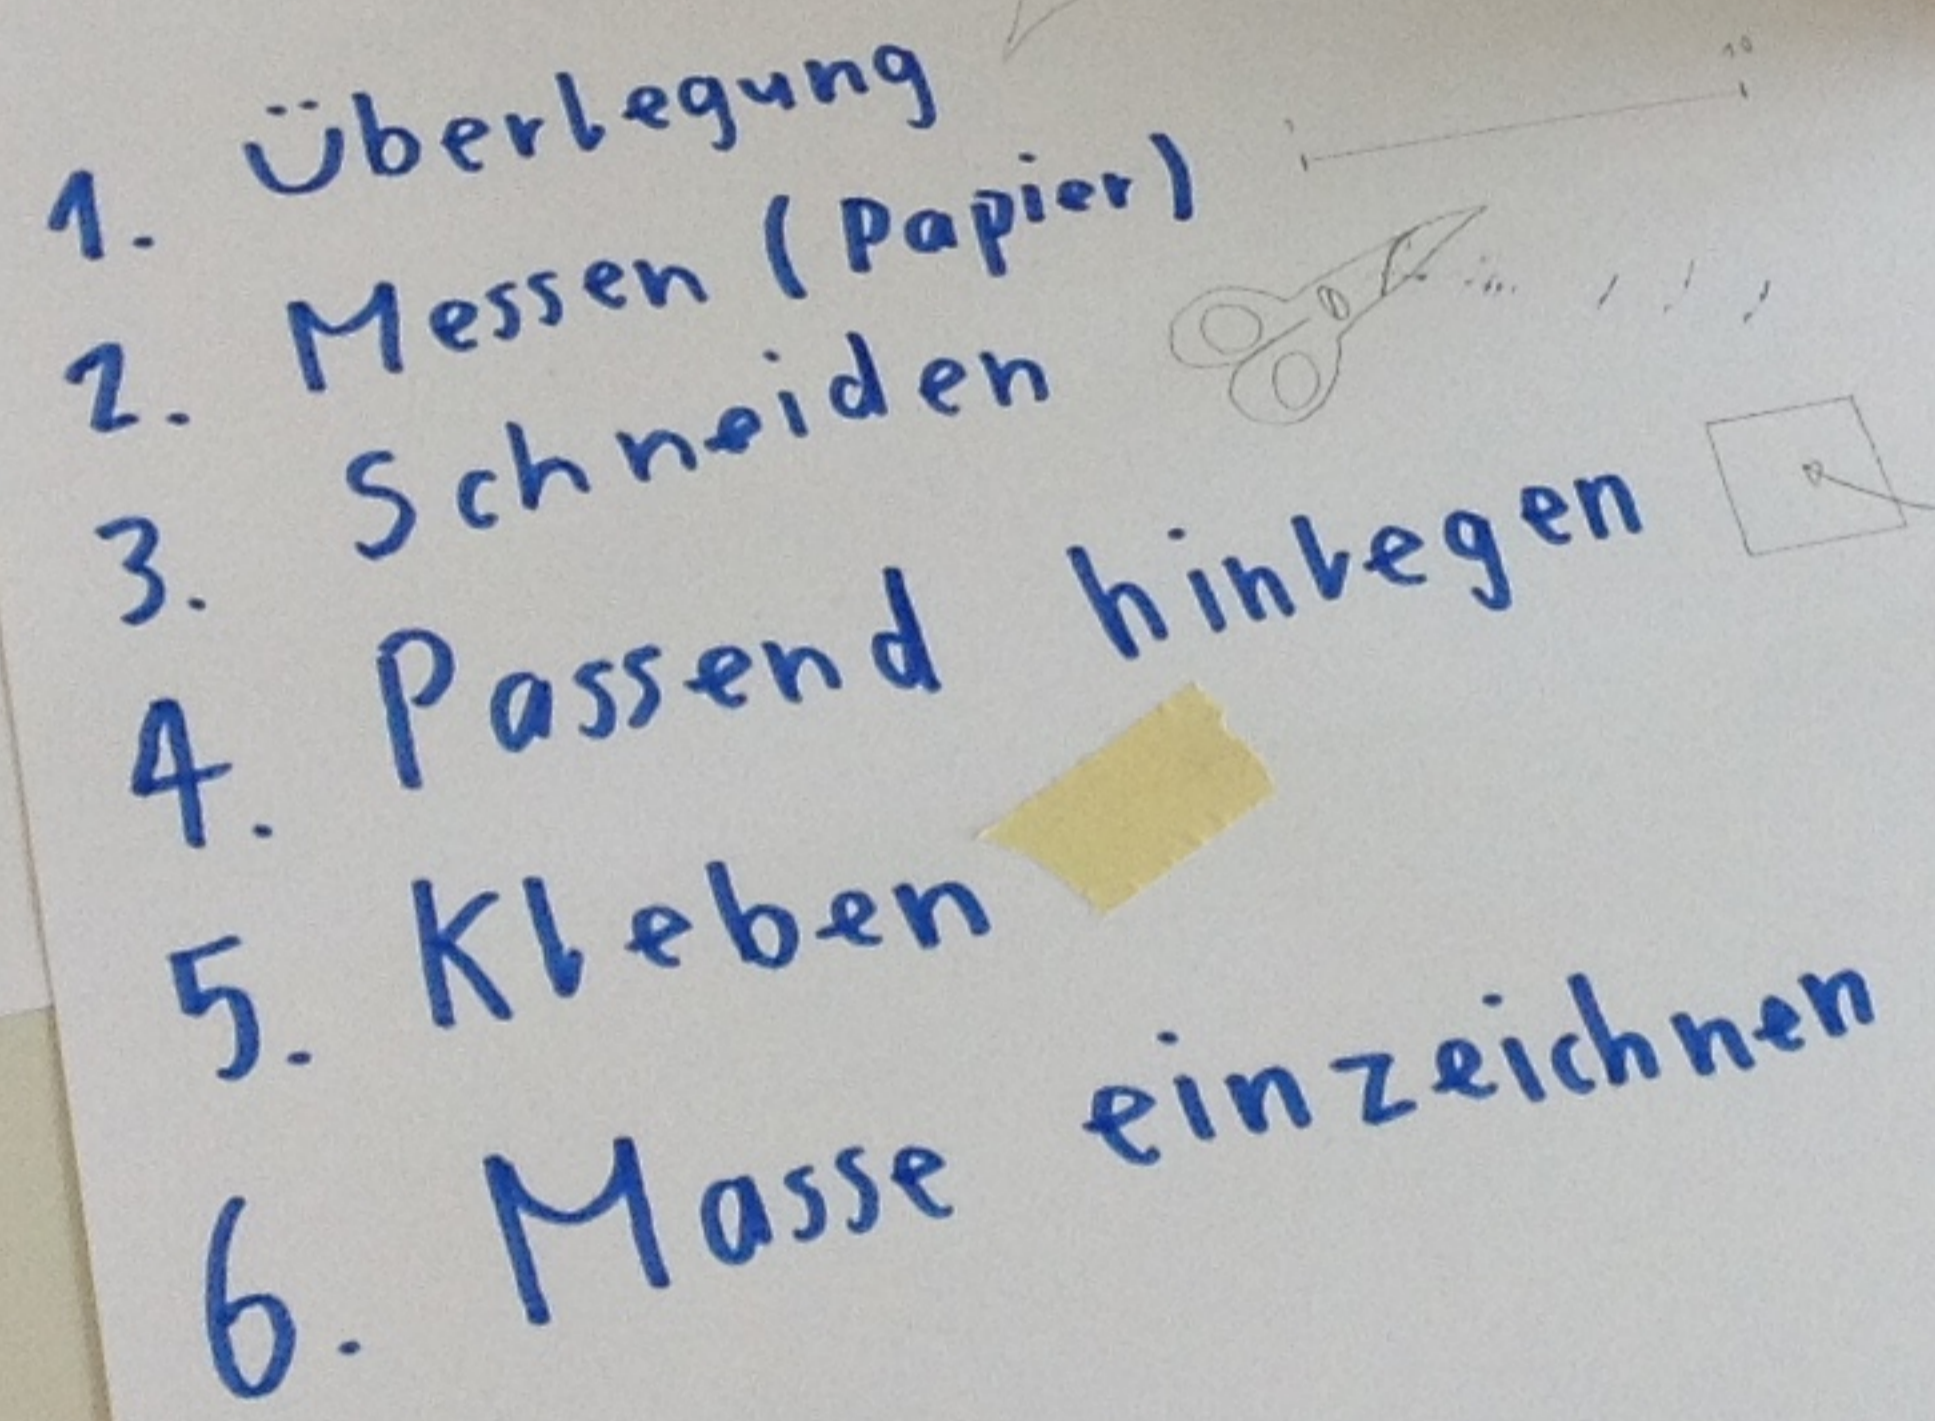 1. Überlegung
2. Messen (Papier)
3. Schneiden
4. Passend hinlegen
5. Kleben
6. Masse einzeichnen